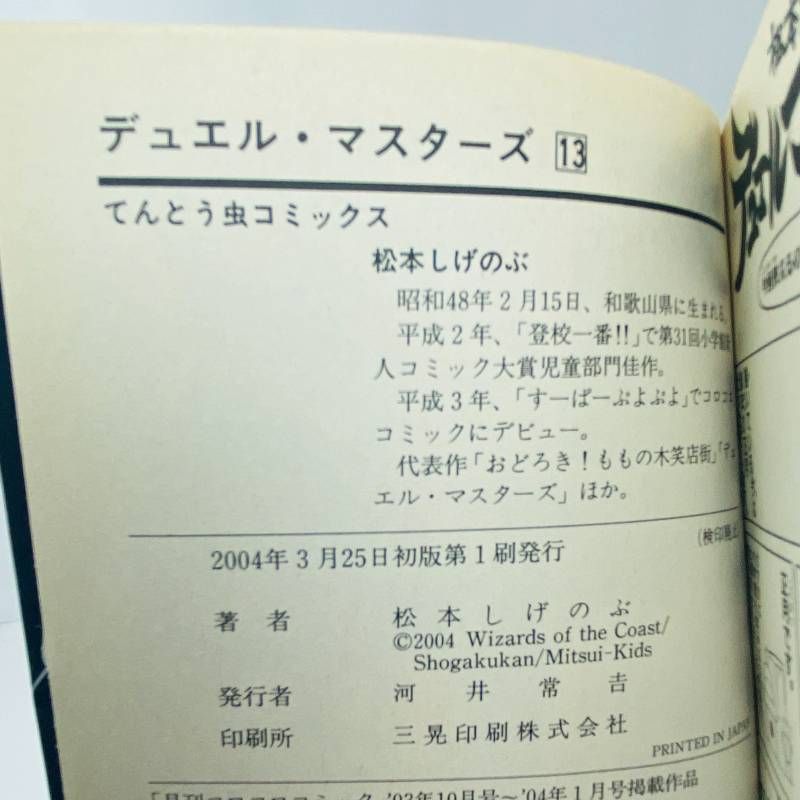 デュエル・マスターズ 13
てんとう虫コミックス
松本しげのぶ
昭和48年2月15日、和歌山県に生まれる。
平成2年、「登校一番!!」で第31回小学館新
人コミック大賞児童部門佳作。
平成3年、「すーぱーぷよぷよ」でコロコロ
コミックにデビュー。
代表作「おどろき!ももの木笑店街」「デュ
エル・マスターズ」ほか。
(検印廃止)
2004年3月25日初版第1刷発行
著者 松本しげのぶ
©2004 Wizards of the Coast/
Shogakukan/Mitsui-Kids
発行者 河井常吉
印刷所 三晃印刷株式会社
PRINTED IN JAPAN
「月刊コロコロコミック」'03年10月号〜'04年1月号掲載作品